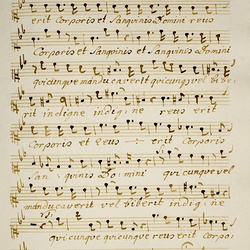 erit Corporis et Sanguinis Domini reus
Corporis et Sanguinis et Sanguinis Domini
quicunque manducaverit quicunque vel bibe
rit indigne indigne reus erit
Corporis et reus erit Corporis
San guinis Domini quicunque vel
manducaverit vel biberit indigne
quicunque quicunque reus erit Corpo